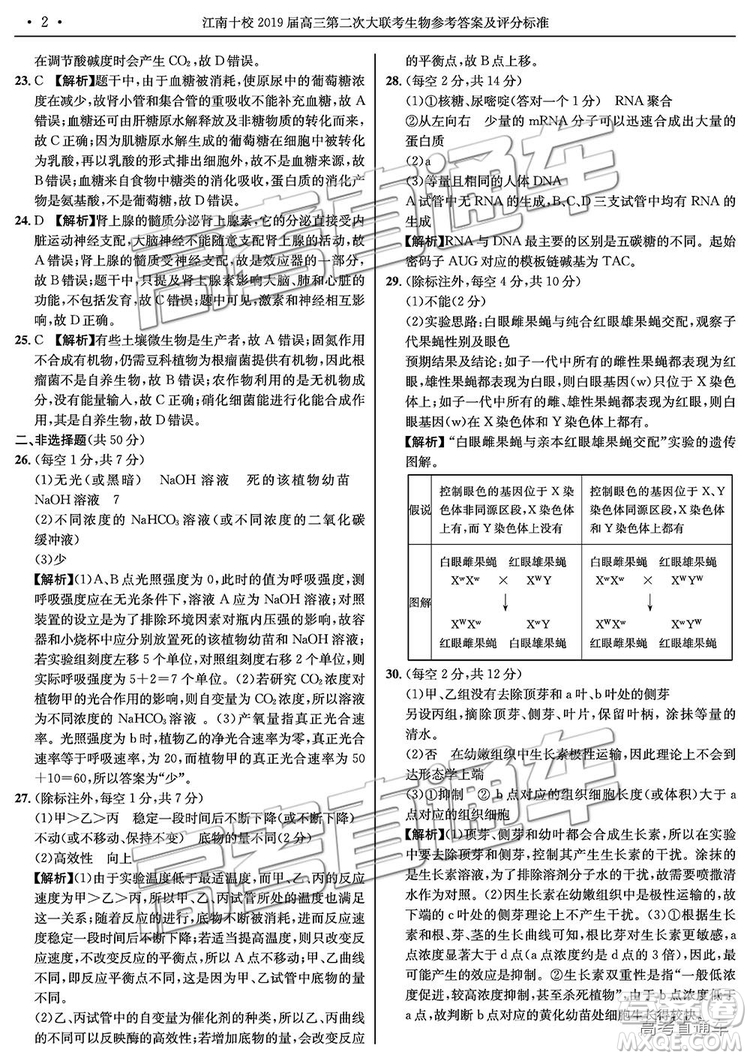 · 2 · 江南十校 2019 届高三第二次大联考生物参考答案及评分标准
在调节酸碱度时会产生 CO₂,故 D 错误。
23. C 【解析】题干中,由于血糖被消耗,使原尿中的葡萄糖浓
度在减少,故肾小管和集合管的重吸收不能补充血糖,故 A
错误;血糖还可由肝糖原水解释放及非糖物质的转化而来,
故 C 正确;因为肌糖原水解产生的葡萄糖在细胞中被氧化
为乳酸,以乳酸的形式排出细胞,故不能形成血糖来源。故
B 错误;血糖来自食物中糖类的消化吸收,蛋白质的消化产
物是氨基酸,不是葡萄糖,故 D 错误。
24. D 【解析】肾上腺的髓质分泌肾上腺素,它的分泌直接受内
脏运动神经支配,大脑神经中枢不能随意支配肾上腺的分
泌,故 A 错误;神经支配肾上腺的分泌,故是效应器的一部
分,故 B 错误;肾上腺素能影响大脑、肺、心脏、肾脏等器官
的活动,故 C 错误;由图可见,激素和神经系统相互影响,
故 D 正确。
25. C 【解析】有些土壤微生物是生产者,故 A 错误;固氮作用
不合成有机物,仍需豆科植物为根瘤菌提供有机物,故根瘤
菌不是自养生物,故 B 错误;农作物利用化肥合成有机物,
没有能量输入,故 C 正确;硝化细菌能进行化能合成作用,
其是自养生物,故 D 错误。
二、非选择题(共 50 分)
26. (每空 1 分,共 7 分)
(1)无光(或黑暗) NaOH 溶液 死的该植物幼苗
NaOH 溶液 7
(2)不同浓度的 NaHCO₃ 溶液(或不同浓度的二氧化碳
缓冲液)
(3)少
【解析】(1)A、B 点光照强度为 0,此时值为呼吸强度,测定
呼吸强度应在无光条件下,溶液 A 应为 NaOH 溶液;对照
装置的设立是为了排除环境因素对瓶内压强的影响,故容
器和小烧杯中应分别放置死的该植物幼苗和 NaOH 溶液。
若实验组刻度左移 5 个单位,对照组右移 2 个单位,则
实际呼吸强度为 5+2=7 个单位。(2)若研究 CO₂ 浓度对
植物甲的光合作用的影响,则自变量为 CO₂ 浓度,溶液应是
不同浓度的 NaHCO₃ 溶液 。(3)产氧量指真正光合速
率。当光照强度为 b 时,植物乙的净光合速率为 15,呼吸速
率为 5,故真正光合速率为 20,而植物甲的真正光合速率为 50
+10=60,所以答案为“少”。
27. (除标注外,每空 1 分,共 7 分)
(1)甲>乙>丙 稳定一段时间后不断下降(或不断下降)
不动(或不移动) 底物的量不同(2 分)
(2)高效性 向上
【解析】(1)由于实验温度低于最适温度,且甲、乙、丙的反应
速度为甲>乙>丙,所以甲、乙、丙试管所处的温度也满足
这一关系;由于乙、丙试管所加的底物量相同,故其平衡点
也相同。在乙的反应过程中,底物不断被消耗,因此乙反应
速度随之不断下降;若适当提高温度,则只会改变反应速
度,不能改变反应平衡点,因此 c 点不移动;甲、乙曲线平衡
点不同,但甲、乙温度也不同,因此甲、乙试管中底物的量一
定不同。
(2)乙、丙试管中的酶量少于甲,所以乙、丙试管在较低的浓
度下就可以反映酶的高效性;若改变甲的自变量,使其反应
平衡点上移,故 B 点上移。
28. (每空 2 分,共 14 分)
(1)①核糖、尿嘧啶(答对一个 1 分) RNA 聚合
②从左向右 少量的 mRNA 分子可以迅速合成出大量的
蛋白质
(2)a
(3)等量且相同的人体 DNA
A 试管中无 RNA 的生成,B、C 试管中均有 RNA 的
生成
【解析】RNA 与 DNA 最主要的区别是五碳糖的不同。起始
密码子 AUG 对应的模板链碱基为 TAC。
29. (除标注外,每空 4 分,共 10 分)
(1)不能(2 分)
(2)实验思路:白眼雌果蝇与纯合红眼雄果蝇交配,观察子
代果蝇性别及眼色
预期结果及结论:如果子代中所有的雌性果蝇都表现为红
眼,雄性果蝇都表现为白眼,则白眼基因(w)只位于 X 染色
体上;如果子代中所有的雌性果蝇都表现为红眼,雄性果蝇
都表现为红眼,则白眼基因(w)位于 X 染色体和 Y 染色
体上
【解析】“白眼雌果蝇与亲本红眼雄果蝇交配”实验的遗传
图解。
假说 控制眼色的基因位于 X 染色体非同源区段,在 X 染色体上有,而 Y 染色体上没有 控制眼色的基因位于 X、Y 染色体同源区段,X、Y 染色体上都有
图解 白眼雌果蝇 红眼雄果蝇 白眼雌果蝇 红眼雄果蝇
XʷXʷ × XᵂY XʷXʷ × XᵂYᵂ
XᵂXʷ XʷY XᵂXʷ XʷYᵂ
红眼雌果蝇 白眼雄果蝇 红眼雌果蝇 红眼雄果蝇
30. (每空 2 分,共 12 分)
(1)甲、乙组没有去除顶芽和 a 叶、b 叶处的侧芽
另设丙组,摘除顶芽、侧芽、叶片,保留叶柄,涂抹等量的
清水。
(2)否 在幼嫩组织中生长素极性运输,因此下端的不会到
达形态学上端
(3)①抑制 ②b 点对应的组织细胞长度(或体积)大于 a
点对应的组织细胞
【解析】(1)顶芽、侧芽和幼叶都会合成生长素,所以在实验
中要去除顶芽、侧芽对其产生生长素的干扰。涂抹的是生
长素,为了排除溶剂对实验的干扰,故丙组需要喷撒清
水或缓冲液。(2)生长素在幼嫩组织中是极性运输的,故
下端的 c 叶处的侧芽不会产生干扰。(3)①只有抑制,因
根、芽、茎的生长曲线可知,根比其他器官敏感,故 a 点的最
大促进浓度大于 d 点(芽的最大抑制点),因此 a 点的最
可能生理作用是抑制;②生长素的作用特点之一是“一般
低浓度促进,较高浓度抑制”,故 b 点的浓度大于 d 点,因
此 b 点对应的黄化幼苗处细胞生长得较快。
高考直通车
高考直通车
高考直通车